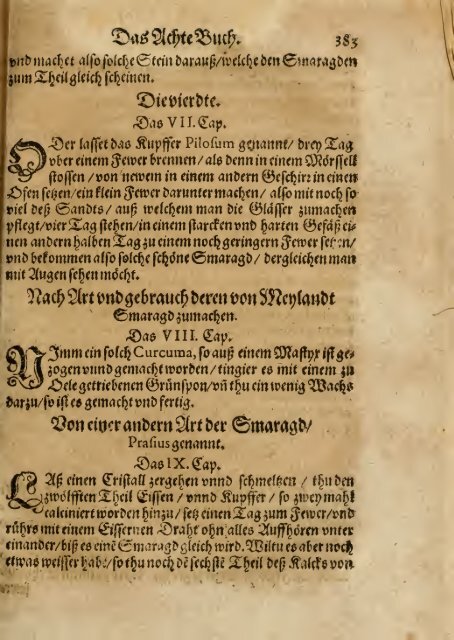 Das Achte Buch. 383
vnd machet also solche Stein darauß/welche den Smaragden
zum Theil gleich scheinen.
Die vierdte.
Das VII. Cap.
Oder lasset das Kupffer Pilosum genannt/ drey Tag
ober einem Fewer brennen/ als denn in einem Mörssell
stossen/ von newem in einem andern Geschirꝛ in einen
Ofen setzen/ ein klein Fewer darunter machen/ also mit noch so
viel deß Sandts/ auß welchem man die Gläser zumachen
pflegt/ vier Tag stehen/ in einem starcken vnd harten Gefäß ei-
nen andern halben Tag zu einem noch geringern Fewer setzen/
vnd bekommen also solche schöne Smaragd/ dergleichen man
mit Augen sehen möcht.
Nach Art vnd gebrauch deren von Meylandt
Smaragd zumachen.
Das VIII. Cap.
NImm ein solch Curcuma, so auß einem Mastyx ist ge-
zogen vnnd gemacht worden/ tingier es mit einem zu
Oele getriebenen Grünspon/ vñ thu ein wenig Wachs
darzu/ so ist es gemacht vnd fertig.
Von einer andern Art der Smaragd/
Prasius genannt.
Das IX. Cap.
LAß einen Cristall zergehen vnnd schmeltzen / thu den
zwölfften Theil Eissen / vnnd Kupffer / so zwey mahl
calciniert worden hinzu/ setz einen Tag zum Fewer/ vnd
rührs mit einem Eissernen Draht ohn alles Auffhören vnter
einander/ biß es einē Smaragd gleich wird. Wiltu es aber noch
etwas weisser habē/ so thu noch dē sechstē Theil deß Kalcks von